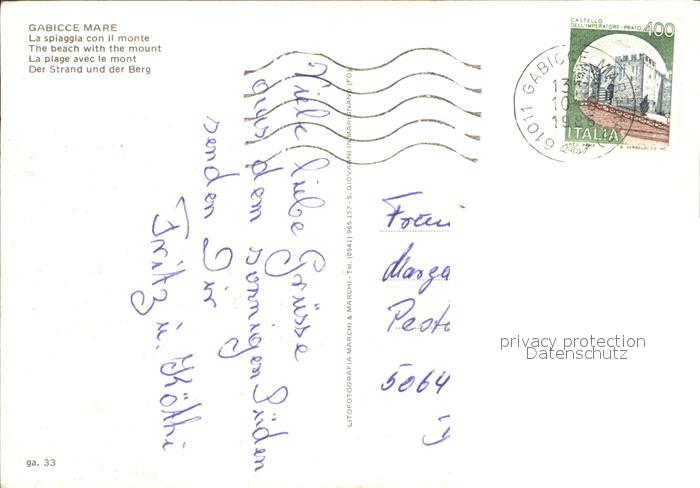 GABICCE MARE
La spiaggia con il monte
The beach with the mount
La plage avec le mont
Der Strand und der Berg
CASTELLO
DELL'IMPERATORE-PRATO 400
ITALIA
61011 GABICCE MARE
Viele liebe Grüsse
aus dem sonnigen Süden
senden Dir
Fritz u. Käthi
LITOFOTOGRAFIA MARCHI & MARCHI - Tel. (0541) 965.157 - S. GIOVANNI IN MARIGNANO (FO)
Marga
Pesta
5064
privacy protection
Datenschutz
ga. 33